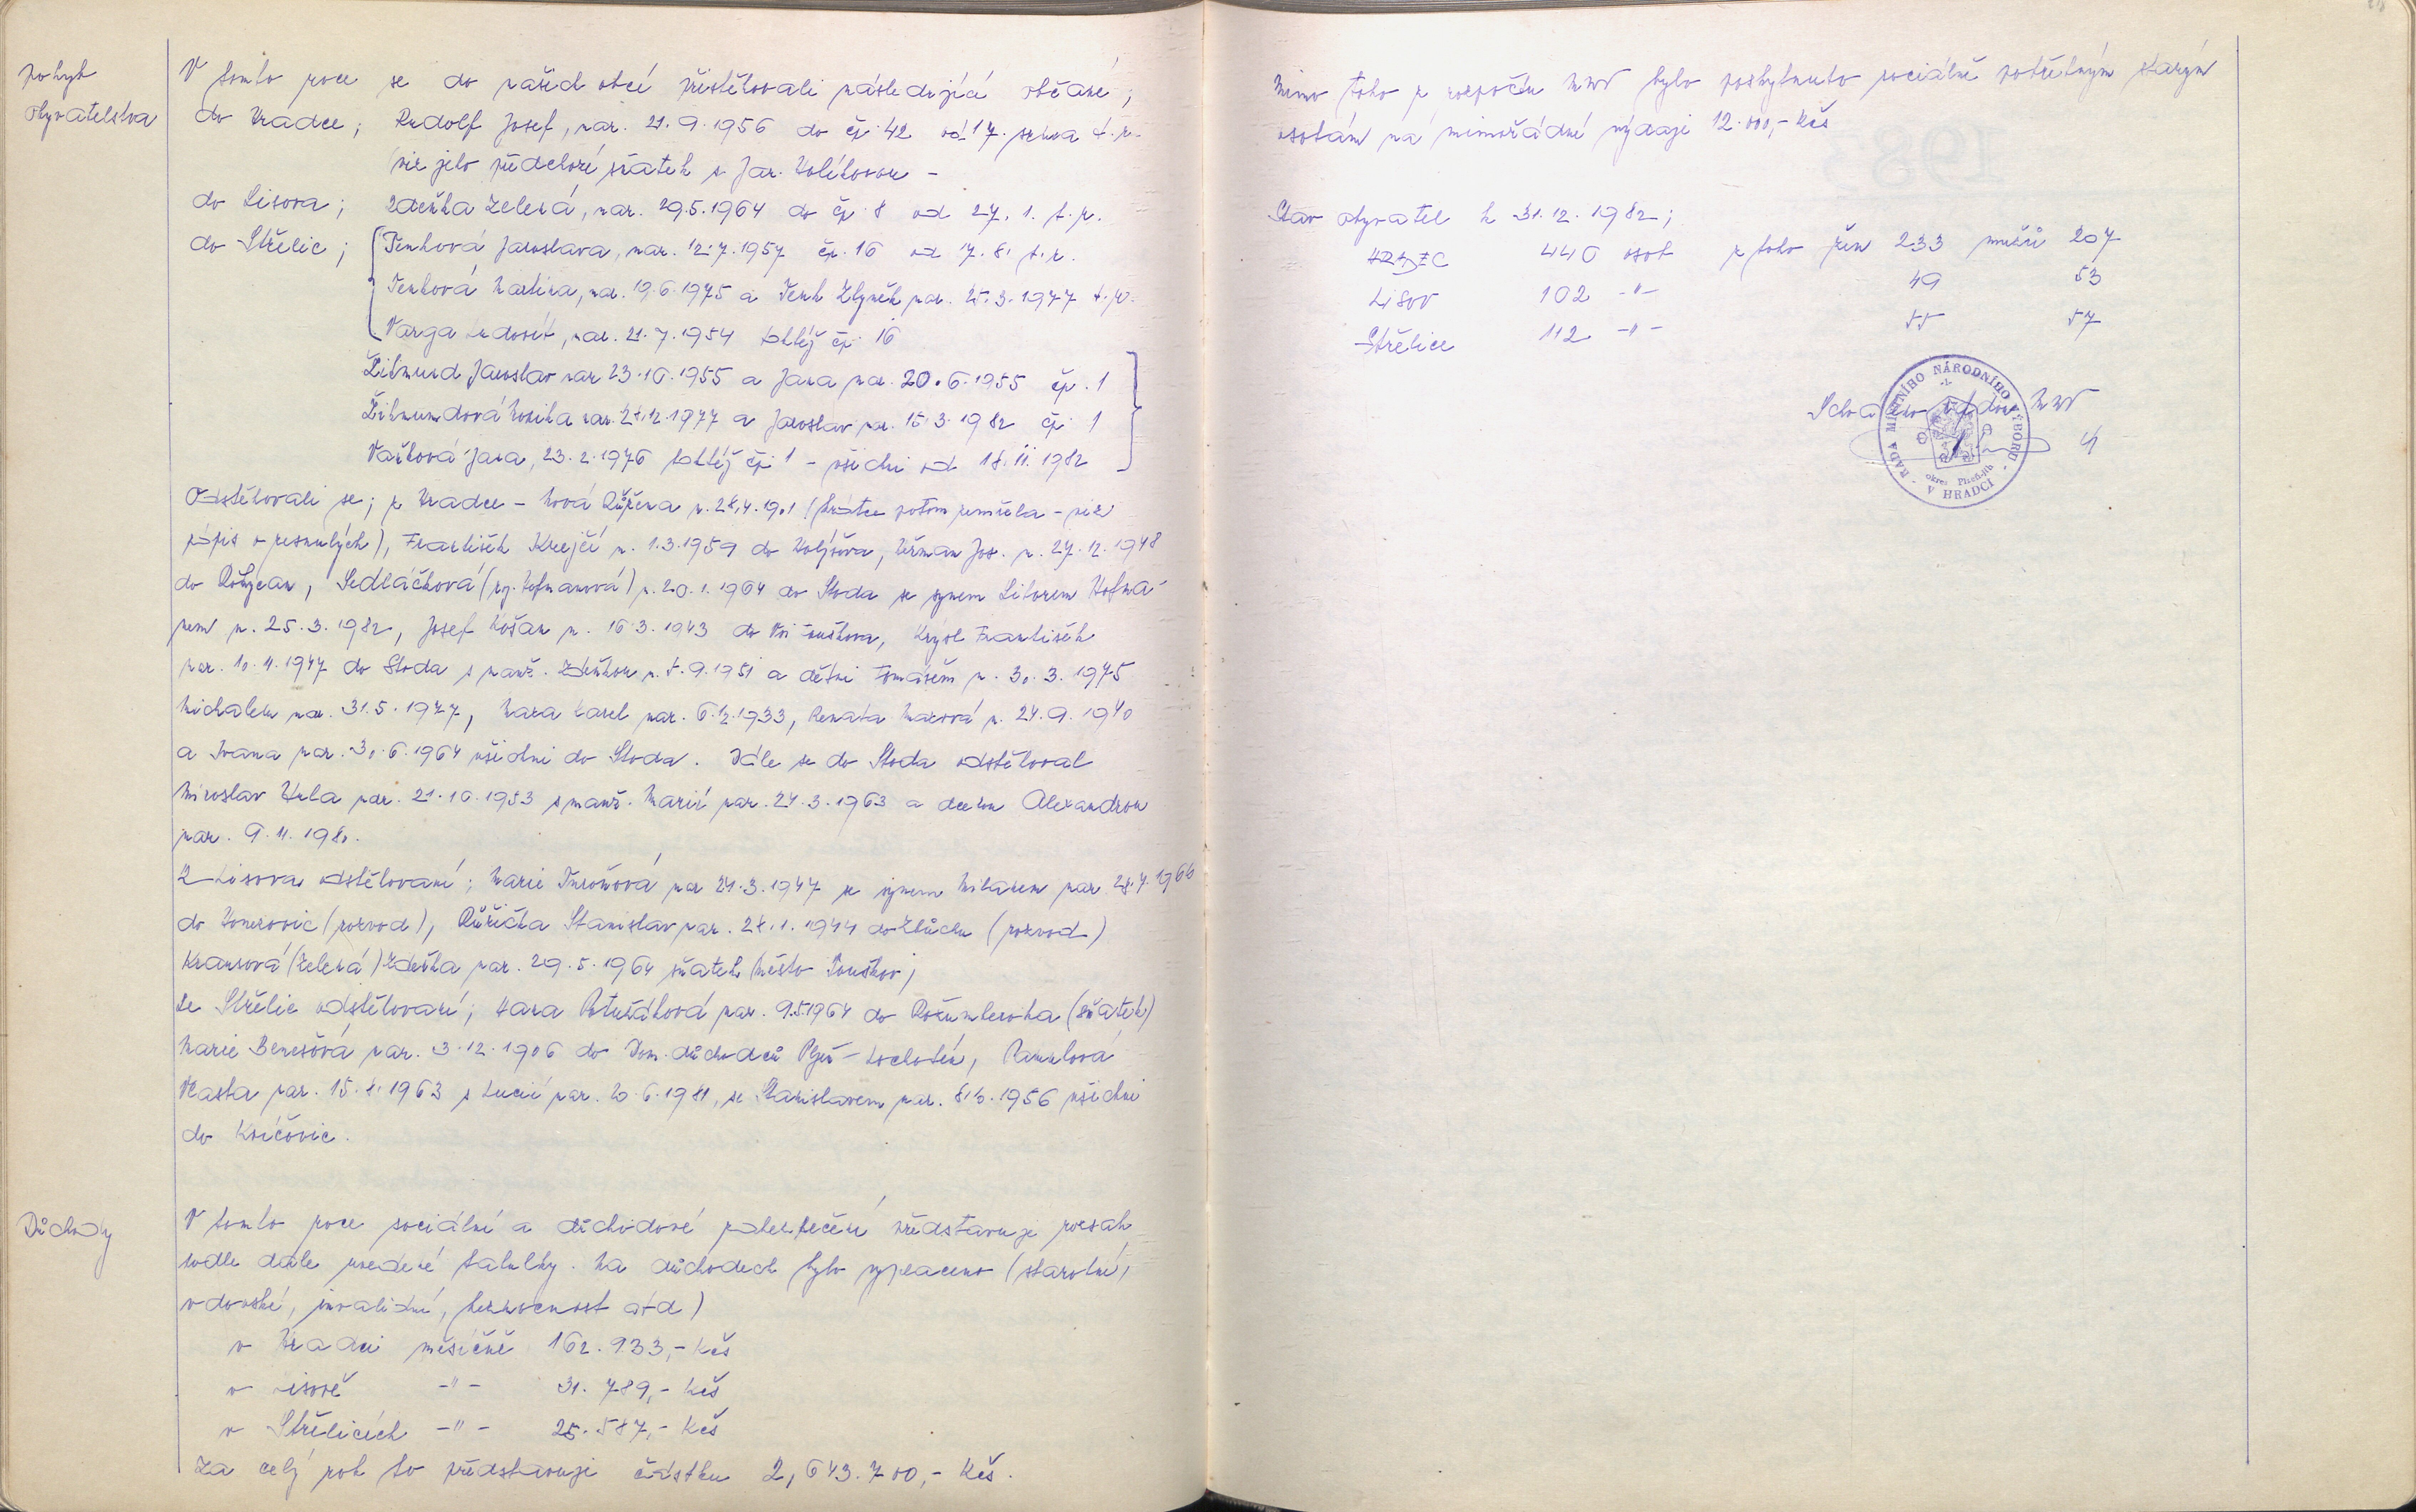 pohyb
obyvatelstva
V tomto roce se do našich obcí přistěhovali následující občané;
do Hradce; Rudolf Josef, nar. 21.9.1956 do čp. 42 od 17. srpna t.r.
viz jeho předchozí sňatek s Jar.
do Lisova; Zdeňka Zelená, nar. 29.5.1964 do čp. 8 od 27. 1. t.r.
do Střelic; Tenková Jaroslava, nar. 12.7.1957 čp. 16 od 7. 8. t.r.
Tenková Martina, nar. 19.6.1975 a Tenk Zbyněk nar. 25.3.1977 t.r.
Varga Ludovít, nar. 21.7.1954 tohtéž čp. 16
Žikmund Jaroslav nar 23.10.1955 a Jana nar. 20.6.1955 čp. 1
Žikmundová Monika nar. 1977 a Jaroslav nar. 15.3.1982 čp. 1
Vaňková Jana, 23.2.1976 tohtéž čp. 1 - všichni od 18.11.1982
Odstěhovali se; z Hradce - Nová Růžena n. 28.4.1901 (krátce potom zemřela - viz
zápis o zesnulých), František Krejčí n. 1.3.1959 do Holýšova, Heřman Jos. n. 27.12.1948
do Rokycan, Sedláčková (roz. Hofmanová) n. 20.1.1964 do Stoda se synem Liborem Hofma-
nem n. 25.3.1982, Josef Košan n. 16.3.1943 do Vsi Touškova, Krýsl František
nar. 10.11.1947 do Stoda s manž. Zdeňkou n. 9.1951 a dětmi Tomášem n. 30.3.1975
Michalem nar. 31.5.1977, Mara Karel nar. 6.12.1933, Renata Marová n. 24.9.1940
a Ivana nar. 30.6.1964 všichni do Stoda. Dále se do Stoda odstěhoval
Miroslav Hrla nar. 21.10.1953 s manž. Marií nar. 24.3.1963 a dcerou Alexandrou
nar. 9.11.1980.
Z Lisova odstěhovaní; Marie nar 24.3.1947 se synem Milanem nar. 28.4.1966
do (rozvod), Růžička Stanislav nar. 1.1944 do Zbůchu (rozvod)
Kramrová (Zelená) Zdeňka nar. 29.5.1964 sňatek Město Touškov;
Ze Střelic odstěhovaní; Hana nar. 9.5.1964 do Rožmberka (sňatek)
Marie Benešová nar. 3.12.1906 do Dom. důchodců Plzeň - Lochotín,
Vlasta nar. 15.8.1963 s Lucií nar. 20.6.1981, se Stanislavem nar. 1956 všichni
do
Důchody
V tomto roce sociální a důchodové zabezpečení představuje rozsah
podle dále uvedené tabulky. Na důchodech bylo vyplaceno (starobní,
vdovské, invalidní, bezmocnost atd)
v Hradci měsíčně 162.933,- Kčs
v Lisově -"- 31.789,- Kčs
v Střelicích -"- 25.587,- Kčs
Za celý rok to představuje částku 2,643.700,- Kčs.
Mimo toho z rozpočtu MNV bylo poskytnuto sociálně potřebným starým
osobám na mimořádné výdaje 12.000,- Kčs
Stav obyvatel k 31.12.1982;
HRADEC 440 osob z toho žen 233 mužů 207
Lisov 102 -"- 49 53
Střelice 112 -"- 55 57
Schváleno radou MNV
RADA MÍSTNÍHO NÁRODNÍHO VÝBORU
okres Plzeň-jih
V HRADCI